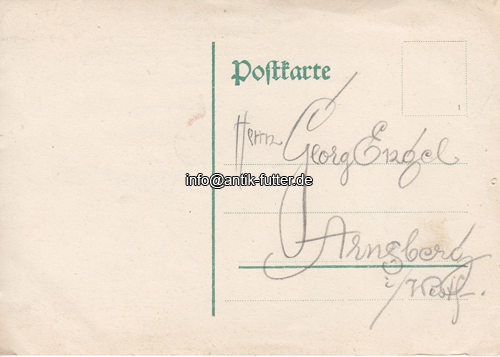 Postkarte
1
Herrn
Georg Engel
info@antik-futter.de
Arnsberg
i/Westf.